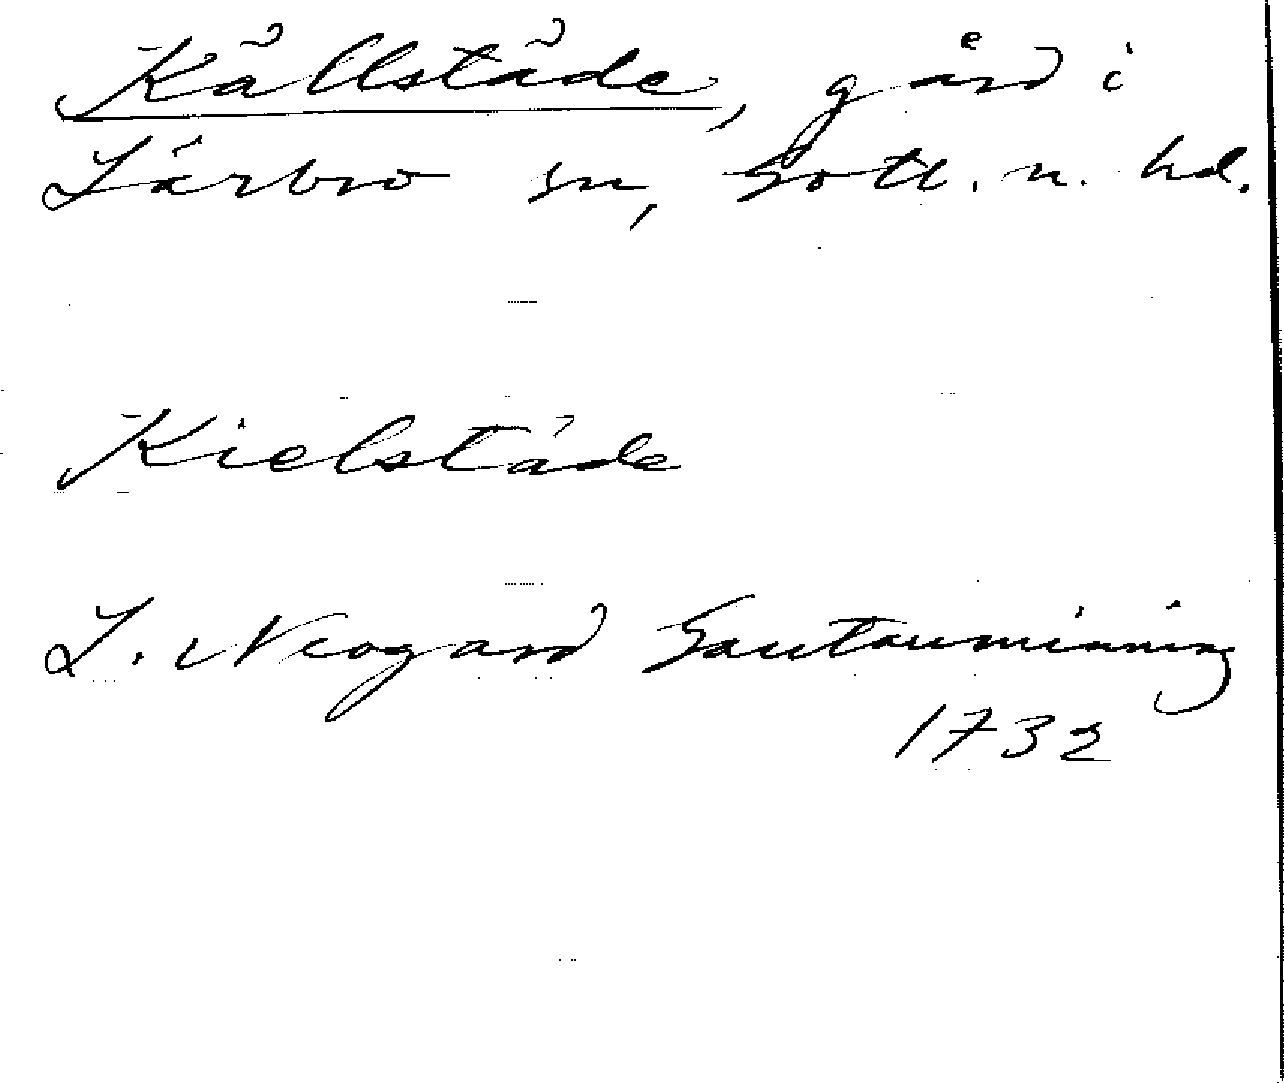 Källstäde, gård i
Lärbro sn, Gotl. n. hd.
Kielstäde
L. Neogard Gautauminning
1732